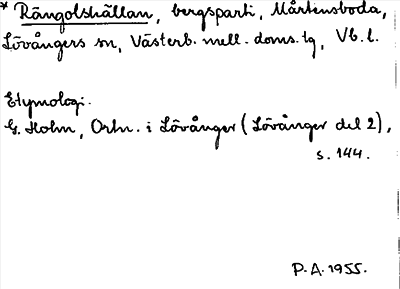 * Rängolshällan, bergsparti, Mårtensboda,
Lövångers sn, Västerb. mell. doms. tg, Vb. l.
Etymologi.
G. Holm, Ortn. i Lövånger (Lövånger del 2),
s. 144.
P. A. 1955.